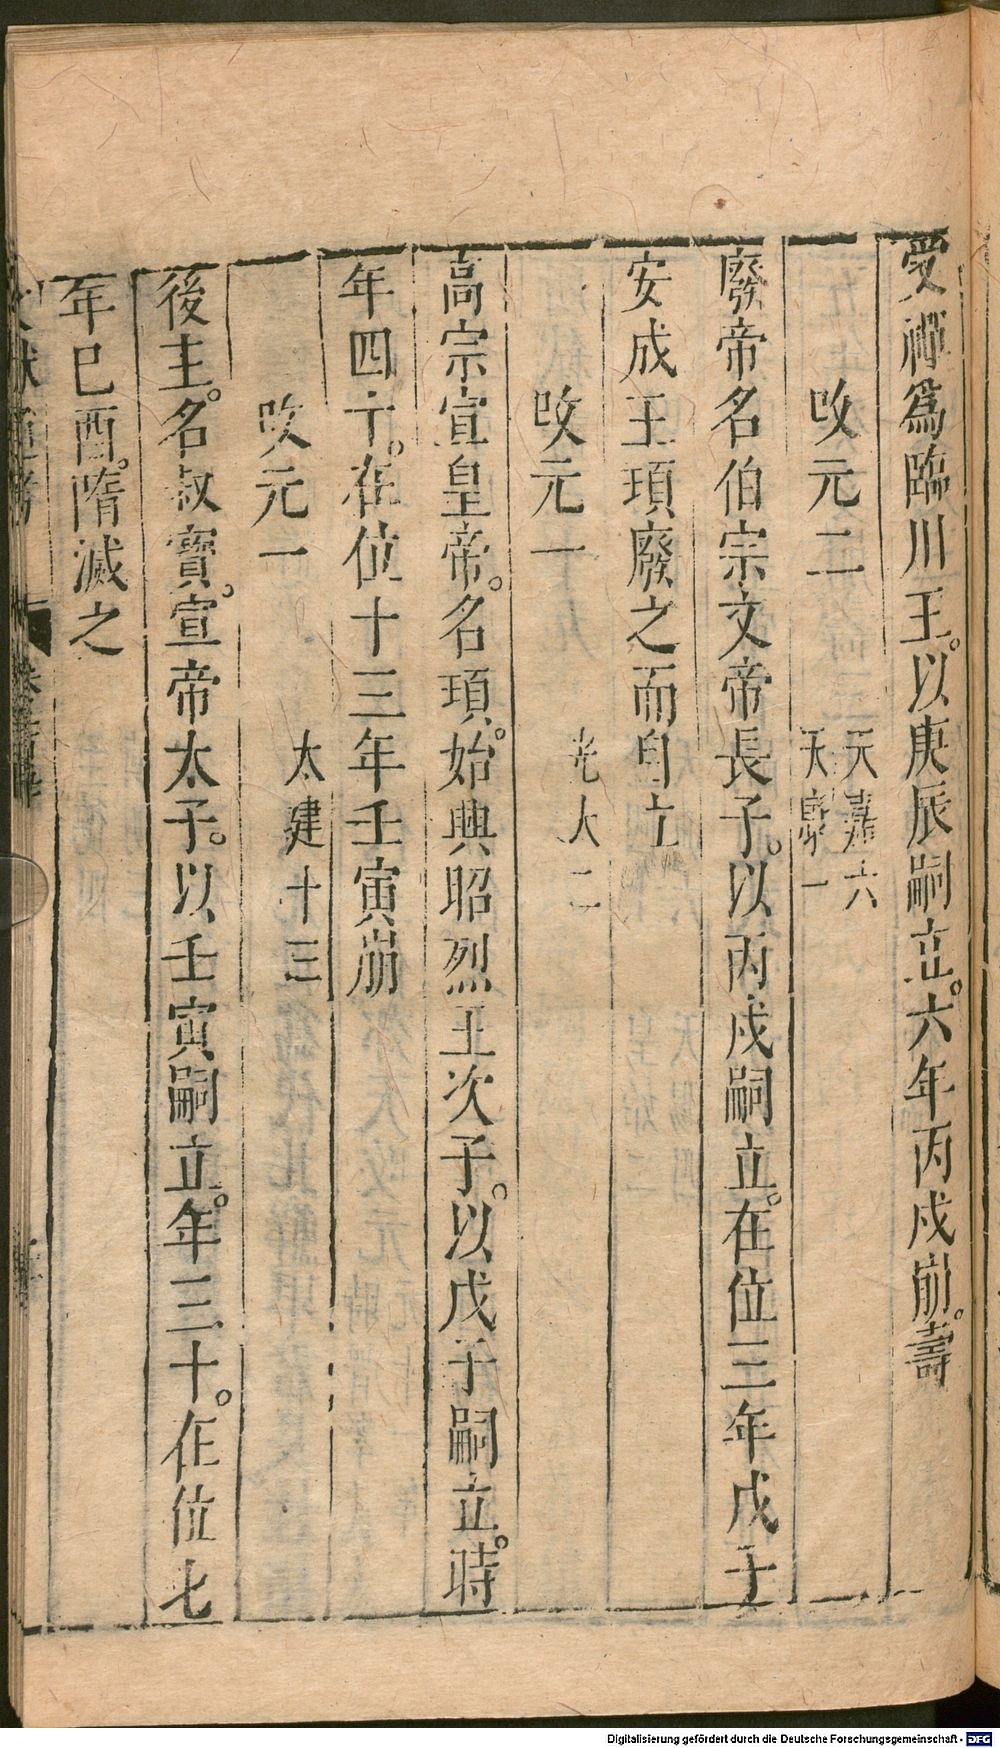 受禪爲臨川王。以庚辰嗣立。六年丙戍崩。壽
改元二
天嘉六
天康一
廢帝名伯宗文帝長子。以丙戍嗣立。在位三年戊子
安成王頊廢之而自立
改元一
光大二
高宗宣皇帝。名頊。始興昭烈王次子。以戊子嗣立。時
年四十。在位十三年壬寅崩
改元一
太建十三
後主。名叔寶。宣帝太子。以壬寅嗣立。年三十。在位七
年巳酉。隋滅之
Digitalisierung gefördert durch die Deutsche Forschungsgemeinschaft - DFG